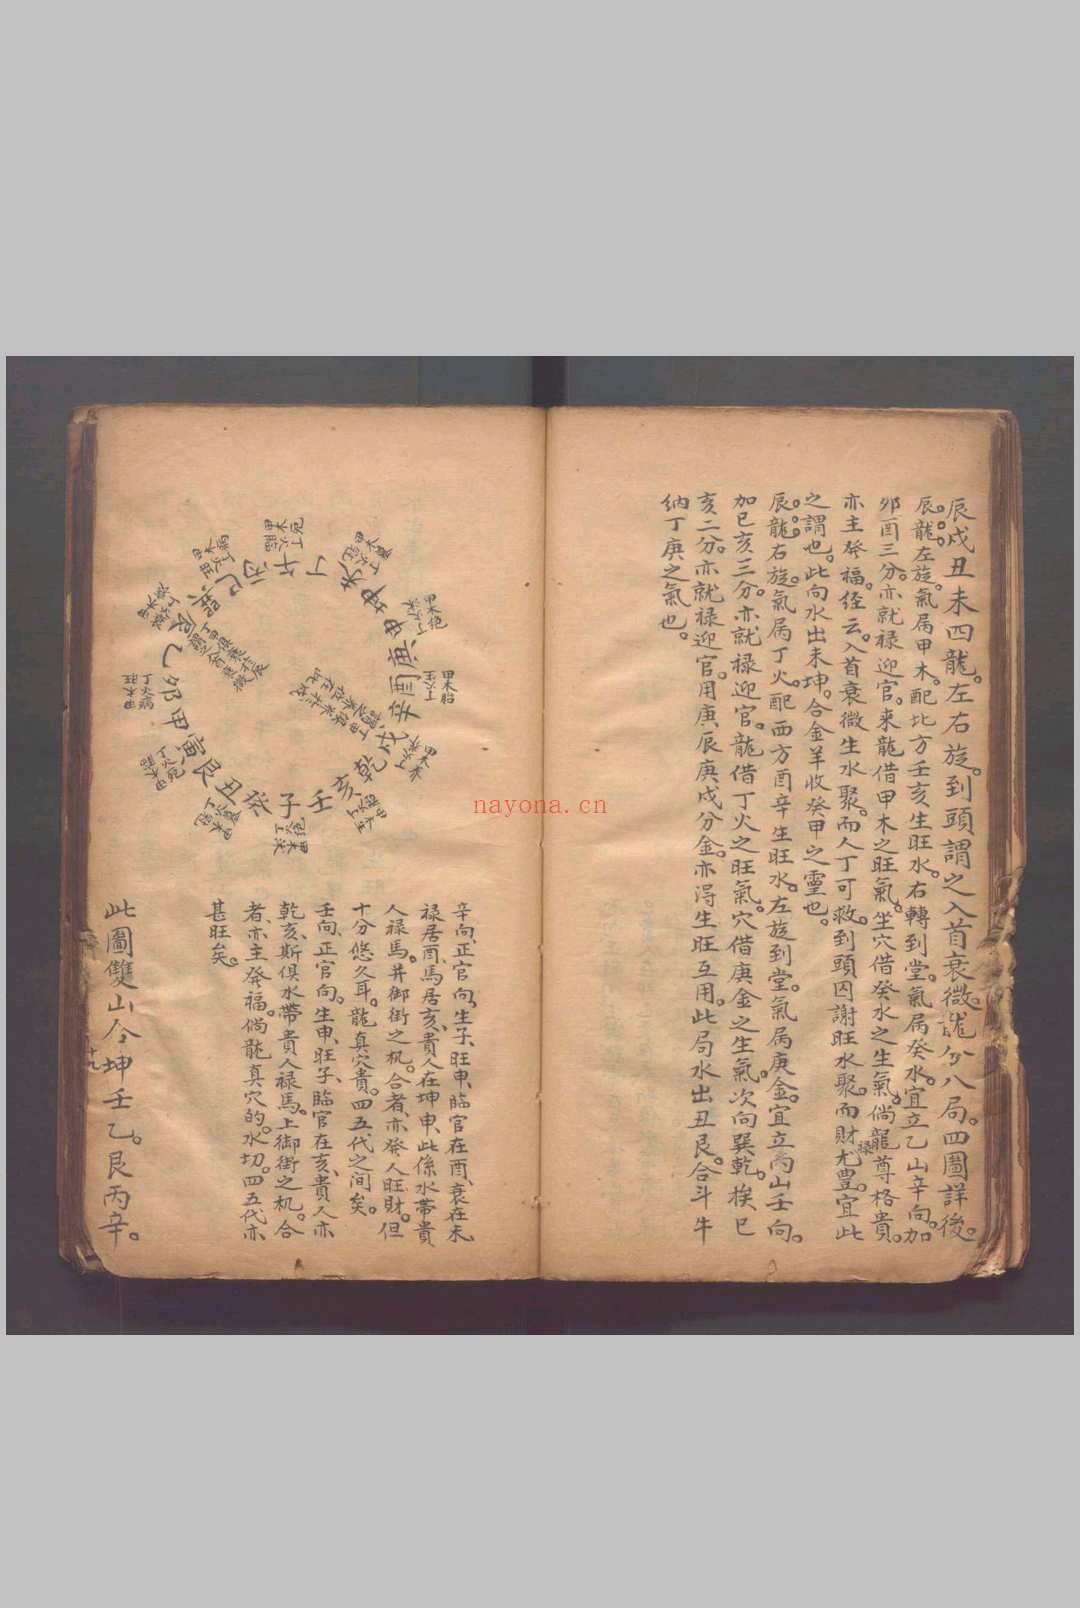 辰戌丑未四龍。左右旋。到頭謂之入首衰微。龍分八局。四圖詳後。
辰龍左旋。氣屬甲木。配北方壬亥生旺水。右轉到堂。氣屬癸水。宜立乙山辛向。加
卯酉三分。亦就祿迎官。来龍借甲木之旺氣。坐穴借癸水之生氣。倘龍尊格貴。
亦主發福。经云。入首衰微生水聚。而人丁可救。到頭囚謝旺水聚。而財祿尤豊。宜此
之謂也。此向水出未坤。合金羊收癸甲之靈也。
辰龍右旋。氣屬丁火。配西方酉辛生旺水。左旋到堂。氣屬庚金。宜立丙山壬向。
加巳亥三分。亦就禄迎官。龍借丁火之旺氣。穴借庚金之生氣。次向巽乾。挨巳
亥二分。亦就禄迎官。用庚辰庚戌分金。亦得生旺互用。此局水出丑艮。合斗牛
納丁庚之氣也。
辛向。正官向。生子、旺申、臨官在酉、衰在未、
禄居酉、馬居亥、貴人在坤申、此係水帶貴
人禄馬。并御街之机。合者、亦發人旺財。但
十分悠久耳。龍真穴貴。四五代之间矣。
壬向、正官向。生申、旺子、臨官在亥、貴人亦
乾亥、斯俱水帶貴人禄馬。上御街之机。合
者、亦主發福。倘龍真穴的。水切。四五代亦
甚旺矣。
此圖雙山令坤壬乙。艮丙辛。
十九
丁午丙巳巽辰乙卯甲寅艮丑癸子壬亥乾戌辛酉庚申坤未
甲木胎
丁火病
甲木旺
nayona.cn